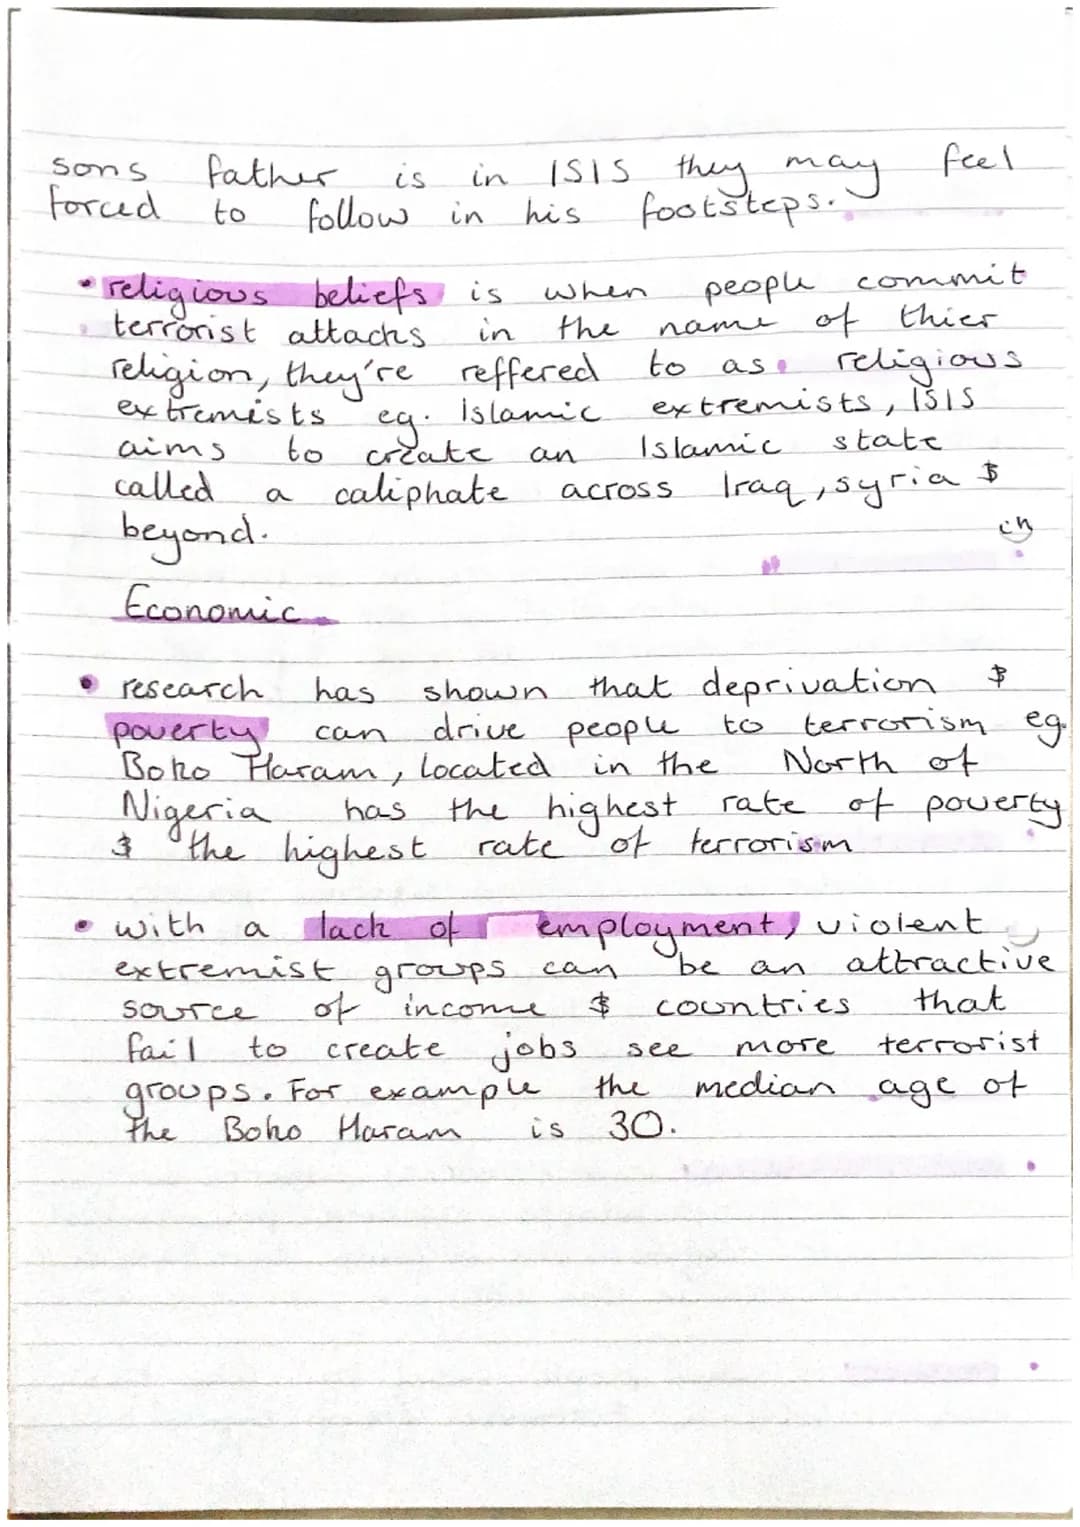 sons father is in ISIS they may feel
forced to follow in his footsteps.
• religious beliefs is when people commit
terrorist attacks in the name of thier
religion, they're reffered to as religious
extremists eg. Islamic extremists, ISIS
aims to create an Islamic state
called a caliphate across Iraq, syria $
beyond.
Economic
• research has shown that deprivation $
poverty can drive people to terrorism eg.
Boko Haram, located in the North of
Nigeria has the highest rate of poverty
$ the highest rate of terrorism
• with a lack of employment, violent
extremist groups can be an attractive
source of income $ countries that
fail to create jobs see more terrorist
groups. For example the median age of
the Boko Haram is 30.